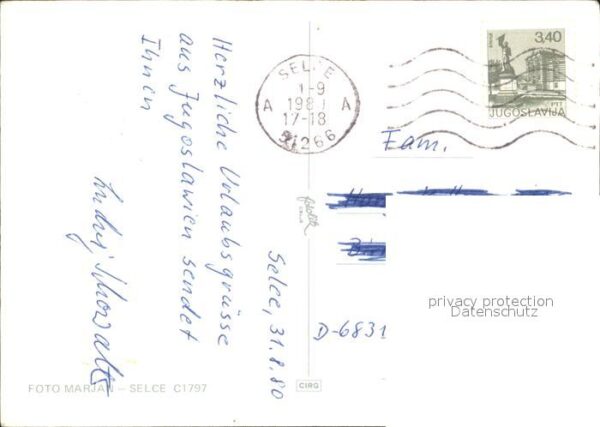 Herzliche Urlaubsgrüsse
aus Jugoslawien sendet
Ihnen
Selce, 31.8.80
SELCE
1-9
A 1980 A
17-18
51266
3,40
PTT
JUGOSLAVIJA
Fam.
D-6831
privacy protection
Datenschutz
FOTO MARJAN – SELCE C1797
CIRG